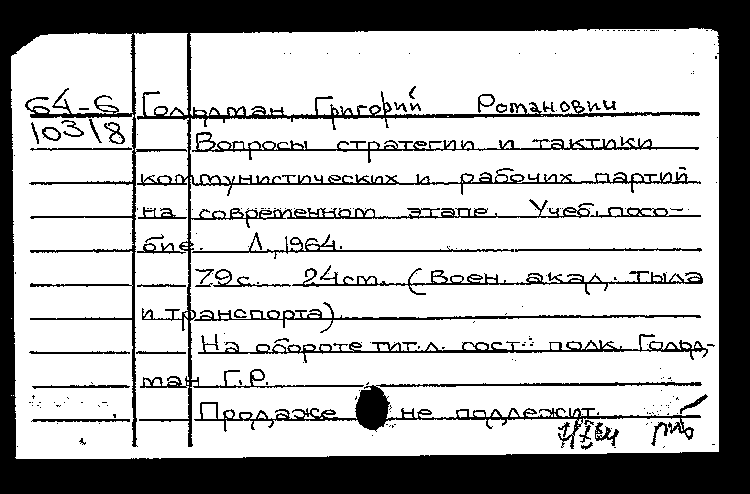 64-6 Гольдман, Григорий Романович
10318 Вопросы стратегии и тактики
коммунистических и рабочих партий
на современном этапе. Учеб. посо-
бие. Л., 1964.
79 с. 24 см. (Воен. акад. тыла
и транспорта)
На обороте тит. л. сост.: полк. Гольд-
ман Г.Р.
Продаже не подлежит.